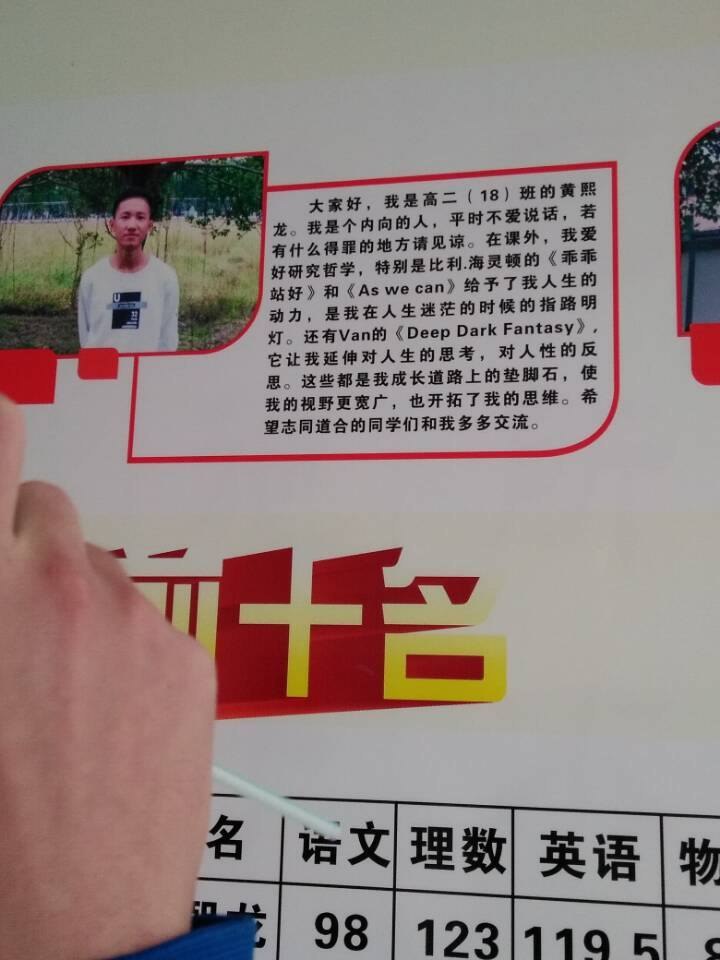 大家好，我是高二（18）班的黄熙
龙。我是个内向的人，平时不爱说话，若
有什么得罪的地方请见谅。在课外，我爱
好研究哲学，特别是比利.海灵顿的《乖乖
站好》和《As we can》给予了我人生的
动力，是我在人生迷茫的时候的指路明
灯。还有Van的《Deep Dark Fantasy》，
它让我延伸对人生的思考，对人性的反
思。这些都是我成长道路上的垫脚石，使
我的视野更宽广，也开拓了我的思维。希
望志同道合的同学们和我多多交流。
U
32
前十名
名 语文 理数 英语 物
熙龙 98 123 119.5